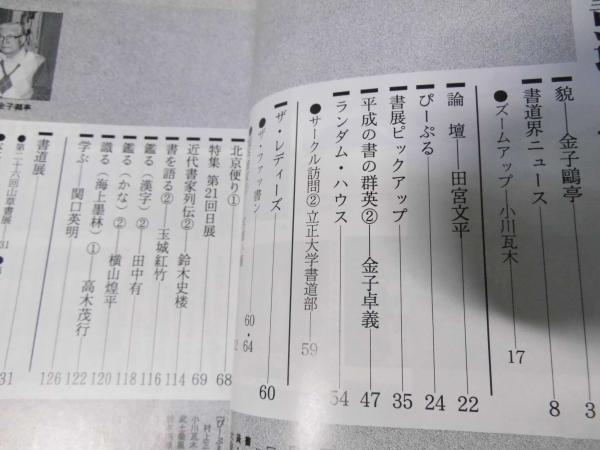 貌——金子鷗亭 3
書道界ニュース 8
●ズームアップ——小川瓦木 17
論 壇——田宮文平 22
ぴーぷる 24
書展ピックアップ 35
平成の書の群英②——金子卓義 47
ランダム・ハウス 54
●サークル訪問②立正大学書道部——59
ザ・レディーズ 60
60・64
北京便り① 68
特集 第21回日展 69
近代書家列伝②——鈴木史楼 114
書を語る②——玉城紅竹 116
鑑る（漢字）②——田中有 118
鑑る（かな）②——横山煌平 120
識る（海上墨林）①——高木茂行 122
学ぶ——関口英明 126
書道展
●第二十六回山草書展
131
31